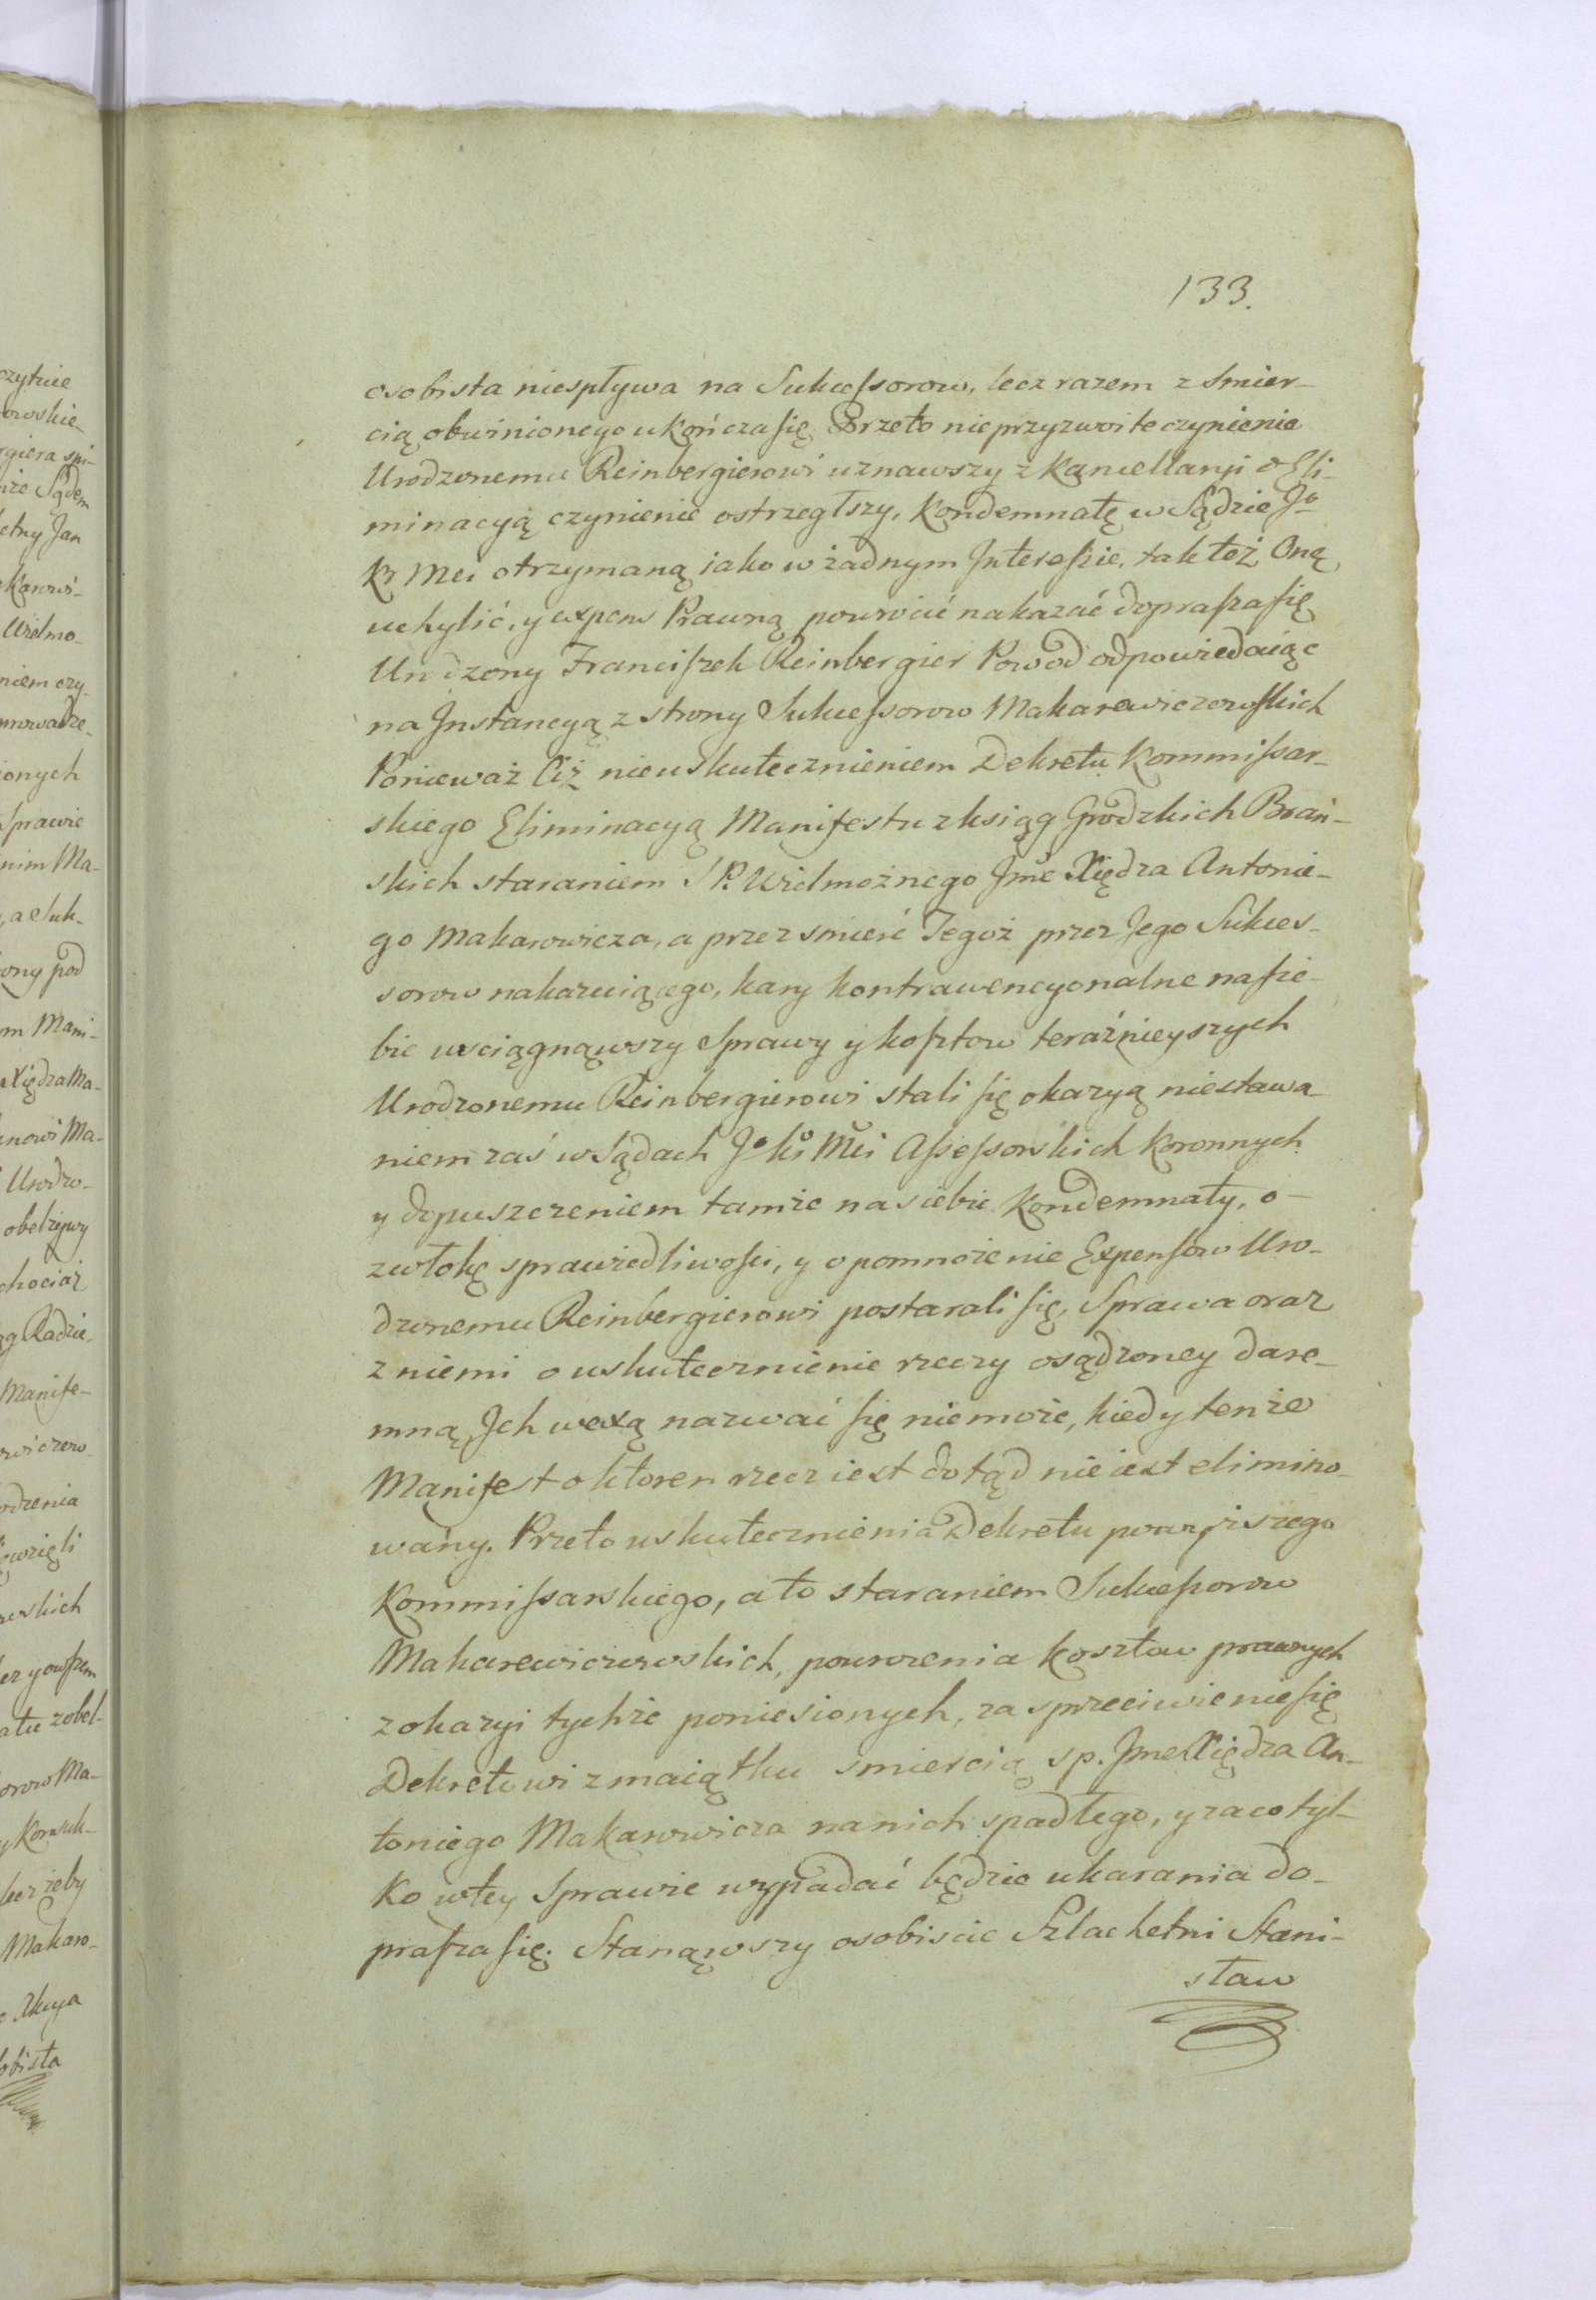 133.
osobista niespływa na Sukcessorow, lecz razem z Smier-
cią obwinionego ukończa się Przeto nieprzyzwoite czynienie
Urodzonemu Reinbergierowi uznawszy z Kancellaryi o Eli-
minacyą czynienie ostrzegłszy, Kondemnatę w Sądzie Jo
K Mci otrzymaną iako w żadnym Interessie, tak też Oną
uchylić, y expens Prawną powrócić nakazać doprasza się
Urodzony Franciszek Reinbergier Powod odpowiedaiąc
na Instancyą z strony Sukcessorow Makarewiczowskich
Ponieważ Ciż nieuskutecznieniem Dekretu Kommissar-
skiego Eliminacyą Manifestu z ksiąg Grodzkich Brań-
skich staraniem Ś P. Wielmożnego Jmć Xiędza Antonie-
go Makarowicza, a przez smierć Tegoż przez Jego Sukces-
sorow nakazuiącego, kary kontrawencyonalne na sie-
bie wsciągnąwszy Sprawy y kosztow teraźnieyszych
Urodzonemu Reinbergierowi stali się okazyą niestawa-
niem zaś w Sądach Jo Ki Mci Assessorskich Koronnych
y dopuszczeniem tamże na siebie Kondemnaty, o-
zwłokę sprawiedliwości, y o pomnożenie Expensow Uro-
dzonemu Reinbergierowi postarali się, Sprawa oraz
z niemi o uskutecznienie rzeczy osądzoney dare-
mną Jch wexą nazwać się niemoże, kiedy tenże
Manifest o ktoren rzecz iest dotąd nie iest elimino-
wany. Przeto uskutecznienia Dekretu powyższego
Kommissarskiego, a to staraniem Sukcessorow
Makarewiczowskich, powrozenia Kosztow prawnych
z okazyi tychże poniesionych, za sprzeciwienie się
Dekretowi z maiątku smiercią sp. Jmć Xiędza An-
toniego Makarowicza na nich spadłego, y za co tyl-
ko w tey Sprawie wypadać będzie ukarania do-
prasza się. Stanąwszy osobiscie Szlachetni Stani-
sław